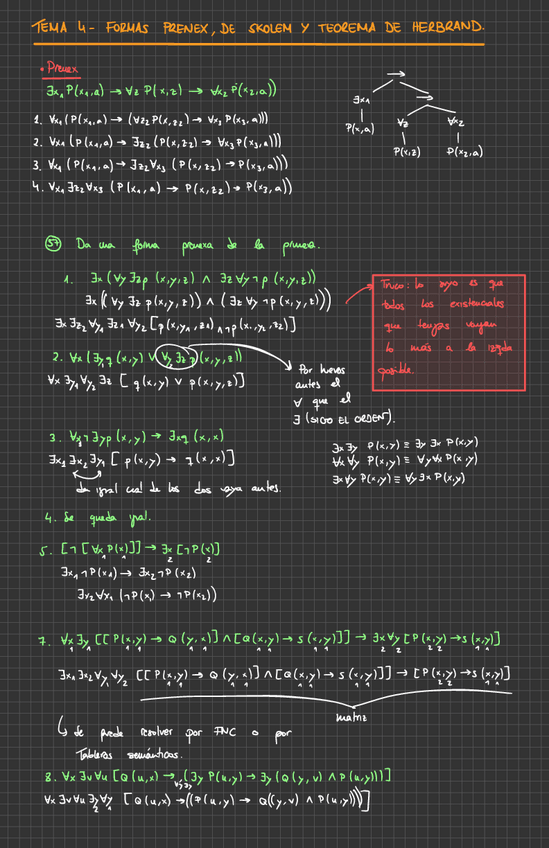 TEMA 4- FORMAS PRENEX, DE SKOLEM Y TEOREMA DE HERBRAND.
• Prenex
∃x₁ P(x₁,a) → ∀z P(x,z) → ∀x₂ P(x₂,a))
1. ∀x₁ (P(x₁,a) → (∀z₂ P(x,z₂) → ∀x₃ P(x₃,a)))
2. ∀x₁ (P(x₁,a) → ∃z₂ (P(x,z₂) → ∀x₃ P(x₃,a)))
3. ∀x₁ (P(x₁,a) → ∃z₂ ∀x₃ (P(x,z₂) → P(x₃,a)))
4. ∀x₁ ∃z₂ ∀x₃ (P(x₁,a) → P(x,z₂) → P(x₃,a))
→
∃x₁ →
P(x,a) ∀z ∀x₂
P(x,z) P(x₂,a)
57 Da una forma prenexa de la primera.
1. ∃x (∀y ∃z p (x,y,z) ∧ ∃z ∀y ¬ p (x,y,z))
∃x ((∀y ∃z p(x,y,z)) ∧ (∃z ∀y ¬p(x,y,z)))
∃x ∃z₂ ∀y₁ ∃z₁ ∀y₂ [p(x,y₁,z₁) ∧ ¬p(x,y₂,z₂)]
Truco: lo suyo es que
todos los existenciales
que tengas vayan
lo más a la izqda
posible.
2. ∀x (∃y q (x,y) ∨ ∀y ∃z p (x,y,z))
∀x ∃y₁ ∀y₂ ∃z [q(x,y) ∨ p(x,y,z)]
Por huevos
antes el
∀ que el
∃ (SIGO EL ORDEN).
3. ∀x ¬∃y p (x,y) → ∃x q (x,x)
∃x₁ ∃x₂ ∃y₁ [p(x,y) → q(x,x)]
da igual cual de los dos vaya antes.
∃x ∃y P(x,y) ≡ ∃y ∃x P(x,y)
∀x ∀y P(x,y) ≡ ∀y ∀x P(x,y)
∃x ∀y P(x,y) ≡ ∀y ∃x P(x,y)
4. Se queda igual.
5. [¬[∀x₁ P(x₁)]] → ∃x₂ [¬P(x₂)]
∃x₁ ¬P(x₁) → ∃x₂ ¬P(x₂)
∃x₂ ∀x₁ (¬P(x₁) → ¬P(x₂))
7. ∀x₁ ∃y₁ [[P(x₁,y₁) → Q(y₁,x₁)] ∧ [Q(x₁,y₁) → S(x₁,y₁)]] → ∃x₂ ∀y₂ [P(x₂,y₂) → S(x₁,y₁)]
∃x₁ ∃x₂ ∀y₁ ∀y₂ [[P(x₁,y₁) → Q(y₁,x₁)] ∧ [Q(x₁,y₁) → S(x₁,y₁)]] → [P(x₂,y₂) → S(x₁,y₁)]
matriz
↳ se puede resolver por FNC o por
Tableros semánticos.
8. ∀x ∃v ∀u [Q(u,x) → (∃y P(u,y) → ∃y (Q(y,v) ∧ P(u,y)))]
∀y ∃y
∀x ∃v ∀u ∃y₂ ∀y₁ [Q(u,x) → ((P(u,y) → Q((y,v) ∧ P(u,y))))]